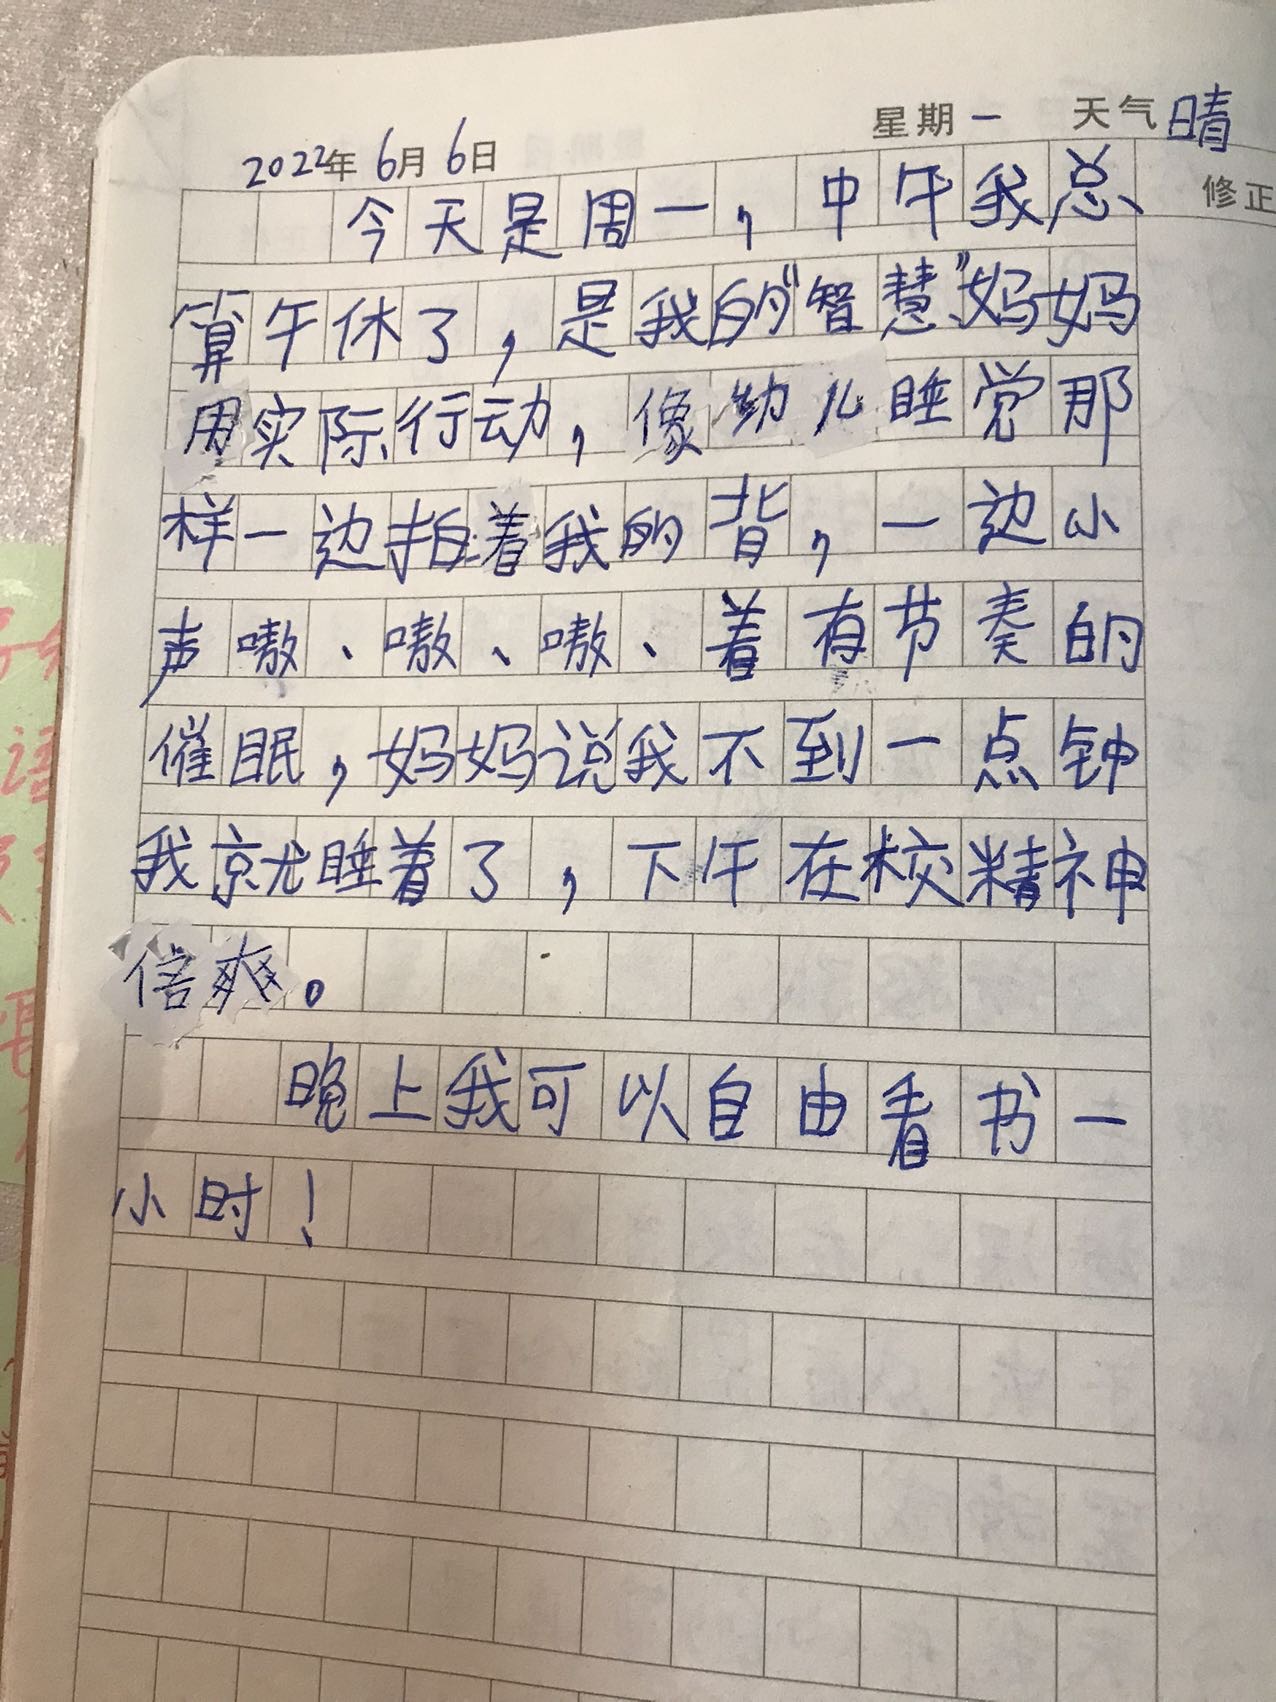 星期一 天气晴
2022年6月6日
修正
今天是周一，中午我总
算午休了，是我的“智慧”妈妈
用实际行动，像幼儿睡觉那
样一边拍着我的背，一边小
声嗷、嗷、嗷、着有节奏的
催眠，妈妈说我不到一点钟
我就睡着了，下午在校精神
倍爽。
晚上我可以自由看书一
小时！